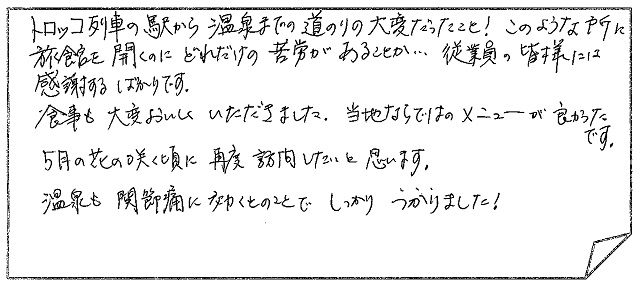 トロッコ列車の駅から温泉までの道のりの大変だったこと！このような所に
旅館を開くのにどれだけの苦労があることか… 従業員の皆様には
感謝するばかりです。
食事も大変おいしくいただきました。当地ならではのメニューが良かった
です。
5月の花の咲く頃に再度訪問したいと思います。
温泉も関節痛に効くとのことでしっかりつかりました！